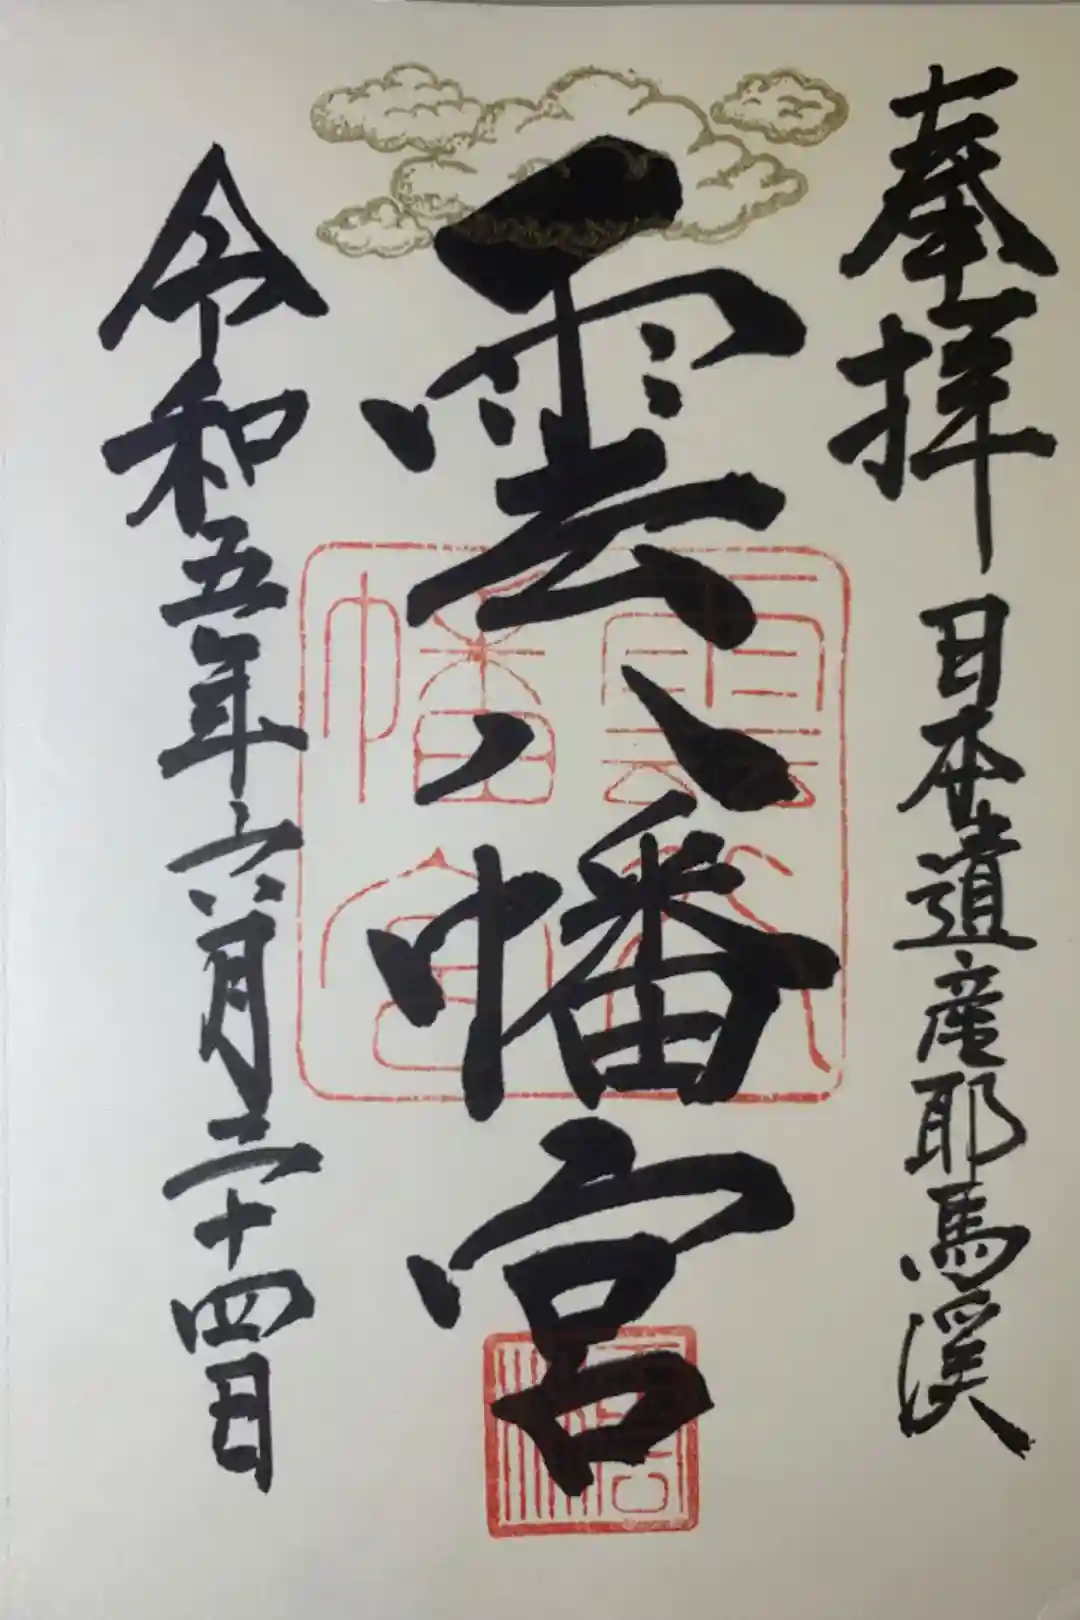 奉拝 日本遺産耶馬渓
雲八幡宮
雲八
幡宮
令和五年六月二十四日